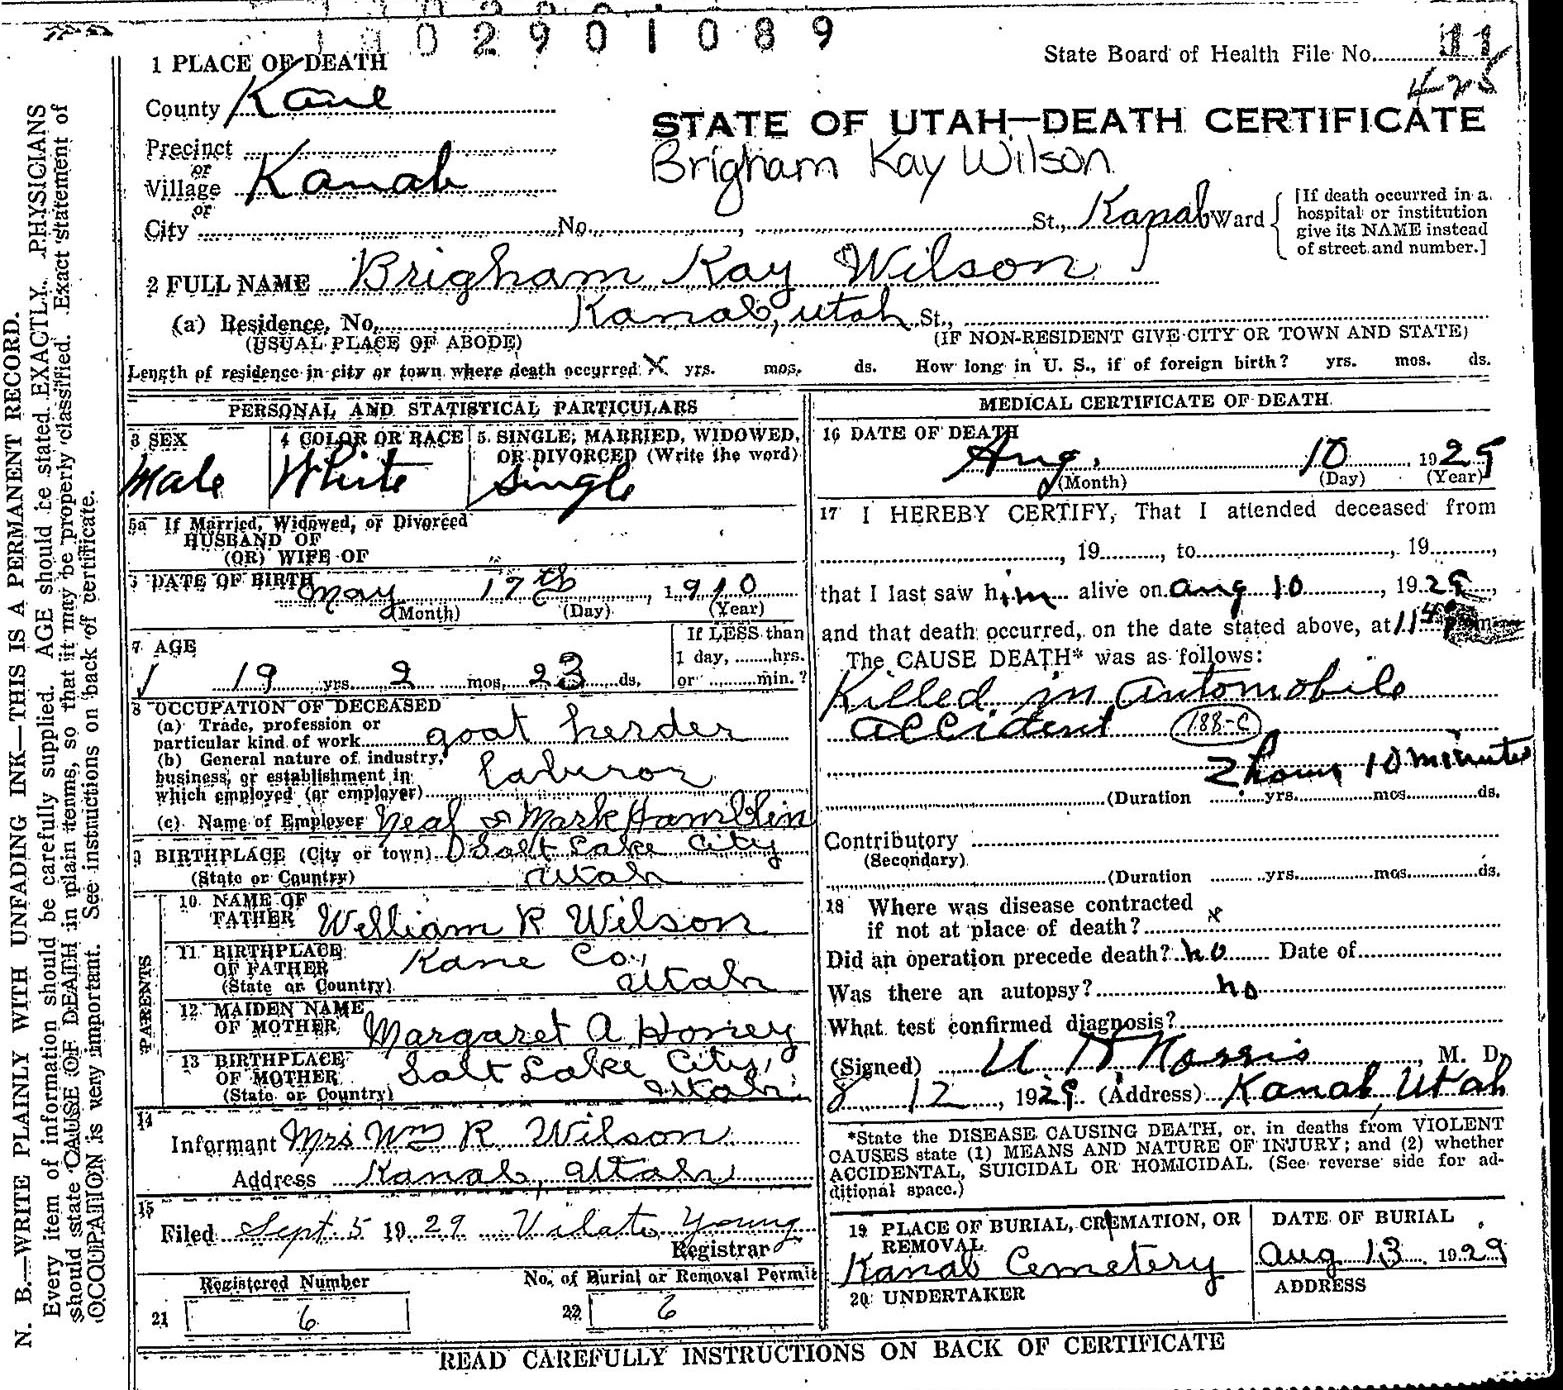 1102901089
State Board of Health File No. 11
425
1 PLACE OF DEATH
County Kane
STATE OF UTAH—DEATH CERTIFICATE
Brigham Kay Wilson
Precinct
or
Village Kanab
or
City No. , St., Kanab Ward
[If death occurred in a hospital or institution give its NAME instead of street and number.]
2 FULL NAME Brigham Kay Wilson
(a) Residence, No. Kanab, Utah St.,
(USUAL PLACE OF ABODE) (IF NON-RESIDENT GIVE CITY OR TOWN AND STATE)
Length of residence in city or town where death occurred X yrs. mos. ds. How long in U. S., if of foreign birth? yrs. mos. ds.
PERSONAL AND STATISTICAL PARTICULARS
3 SEX
Male
4 COLOR OR RACE
White
5. SINGLE, MARRIED, WIDOWED, OR DIVORCED (Write the word)
Single
5a If Married, Widowed, or Divorced
HUSBAND OF
(OR) WIFE OF
DATE OF BIRTH May 17th, 1910
(Month) (Day) (Year)
7 AGE
19 yrs. 2 mos. 23 ds.
If LESS than
1 day, ........hrs.
or ........min.?
8 OCCUPATION OF DECEASED
(a) Trade, profession or
particular kind of work goat herder
(b) General nature of industry,
business, or establishment in
which employed (or employer) Laburor
(c) Name of Employer Neaf or Mark Hamblin
9 BIRTHPLACE (City or town) Salt Lake City
(State or Country) Utah
PARENTS
10 NAME OF
FATHER William R Wilson
11 BIRTHPLACE
OF FATHER
(State or Country) Kane Co., Utah
12 MAIDEN NAME
OF MOTHER Margaret A Honey
13 BIRTHPLACE
OF MOTHER
(State or Country) Salt Lake City, Utah
14
Informant Mrs Wm R Wilson
Address Kanab, Utah
15
Filed Sept. 5 1929 Vilate Young
Registrar
Registered Number
21 6
No. of Burial or Removal Permit
22 6
MEDICAL CERTIFICATE OF DEATH
16 DATE OF DEATH
Aug. 10, 1929
(Month) (Day) (Year)
17 I HEREBY CERTIFY, That I attended deceased from
, 19 , to , 19 ,
that I last saw him alive on Aug 10, 1929,
and that death occurred, on the date stated above, at 11
The CAUSE DEATH* was as follows:
Killed in Automobile
accident 188-C
2 hours 10 minutes
(Duration yrs. mos. ds.
Contributory
(Secondary)
(Duration yrs. mos. ds.
18 Where was disease contracted
if not at place of death? x
Did an operation precede death? no Date of
Was there an autopsy? no
What test confirmed diagnosis?
(Signed) Norris, M. D.
8 12, 1929. (Address) Kanab, Utah
*State the DISEASE CAUSING DEATH, or, in deaths from VIOLENT
CAUSES state (1) MEANS AND NATURE OF INJURY; and (2) whether
ACCIDENTAL, SUICIDAL OR HOMICIDAL. (See reverse side for ad-
ditional space.)
19 PLACE OF BURIAL, CREMATION, OR
REMOVAL
Kanab Cemetery
DATE OF BURIAL
Aug 13 1929
20 UNDERTAKER
ADDRESS
READ CAREFULLY INSTRUCTIONS ON BACK OF CERTIFICATE
N. B.—WRITE PLAINLY WITH UNFADING INK—THIS IS A PERMANENT RECORD.
Every item of information should be carefully supplied. AGE should be stated EXACTLY. PHYSICIANS
should state CAUSE OF DEATH in plain terms, so that it may be properly classified. Exact statement of
OCCUPATION is very important. See instructions on back of certificate.